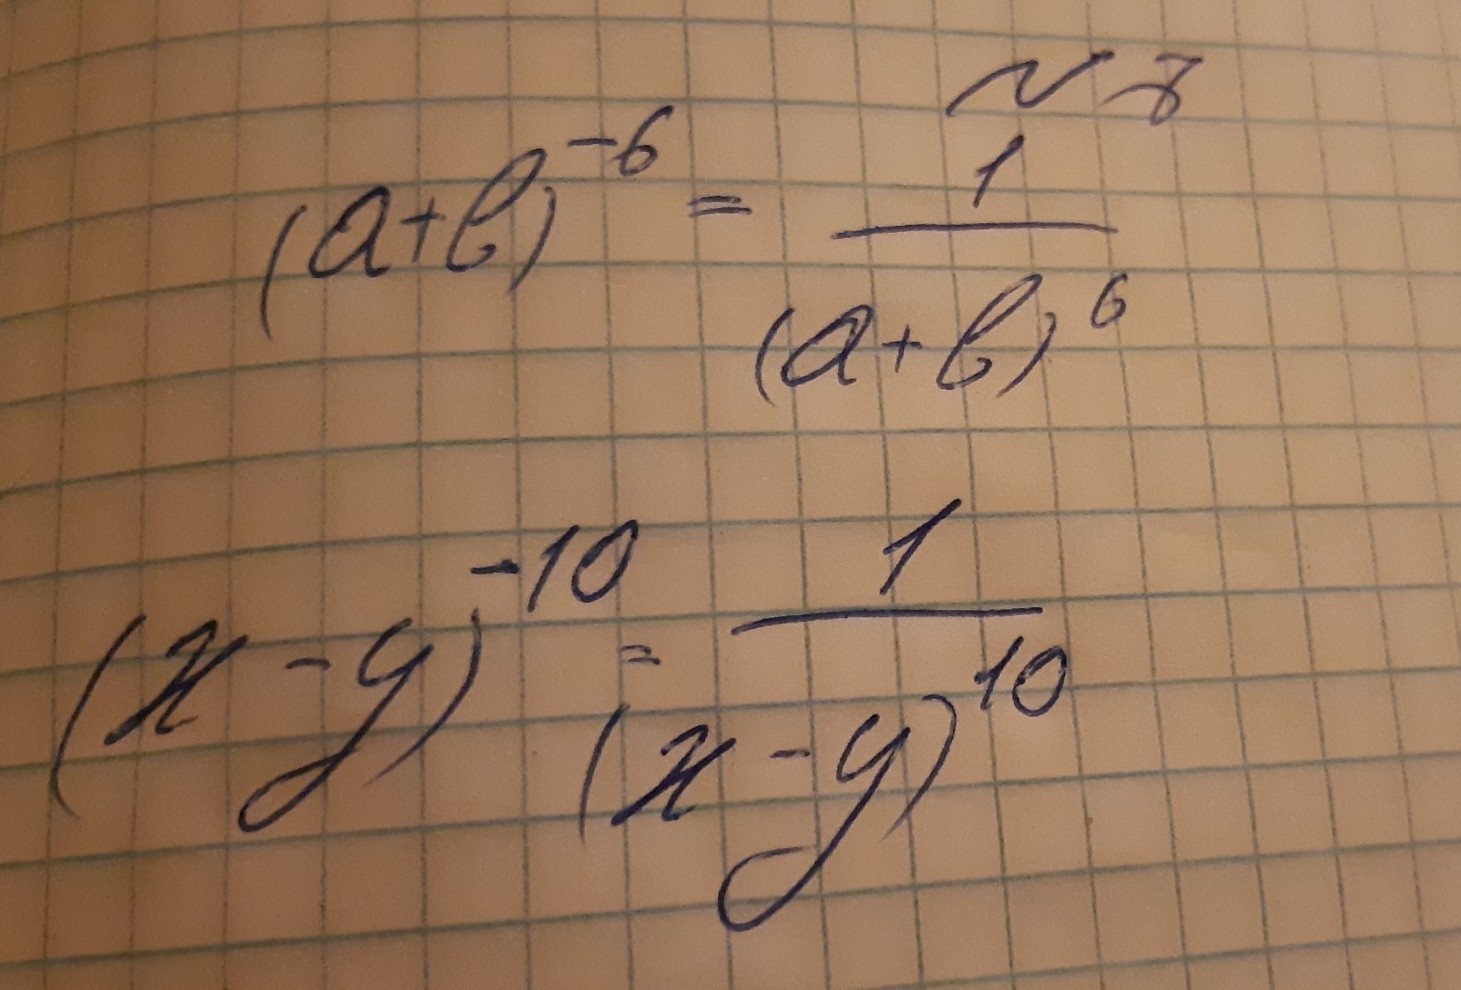 № 8
(a+b)^{-6} = \frac{1}{(a+b)^{6}}
(x-y)^{-10} = \frac{1}{(x-y)^{10}}